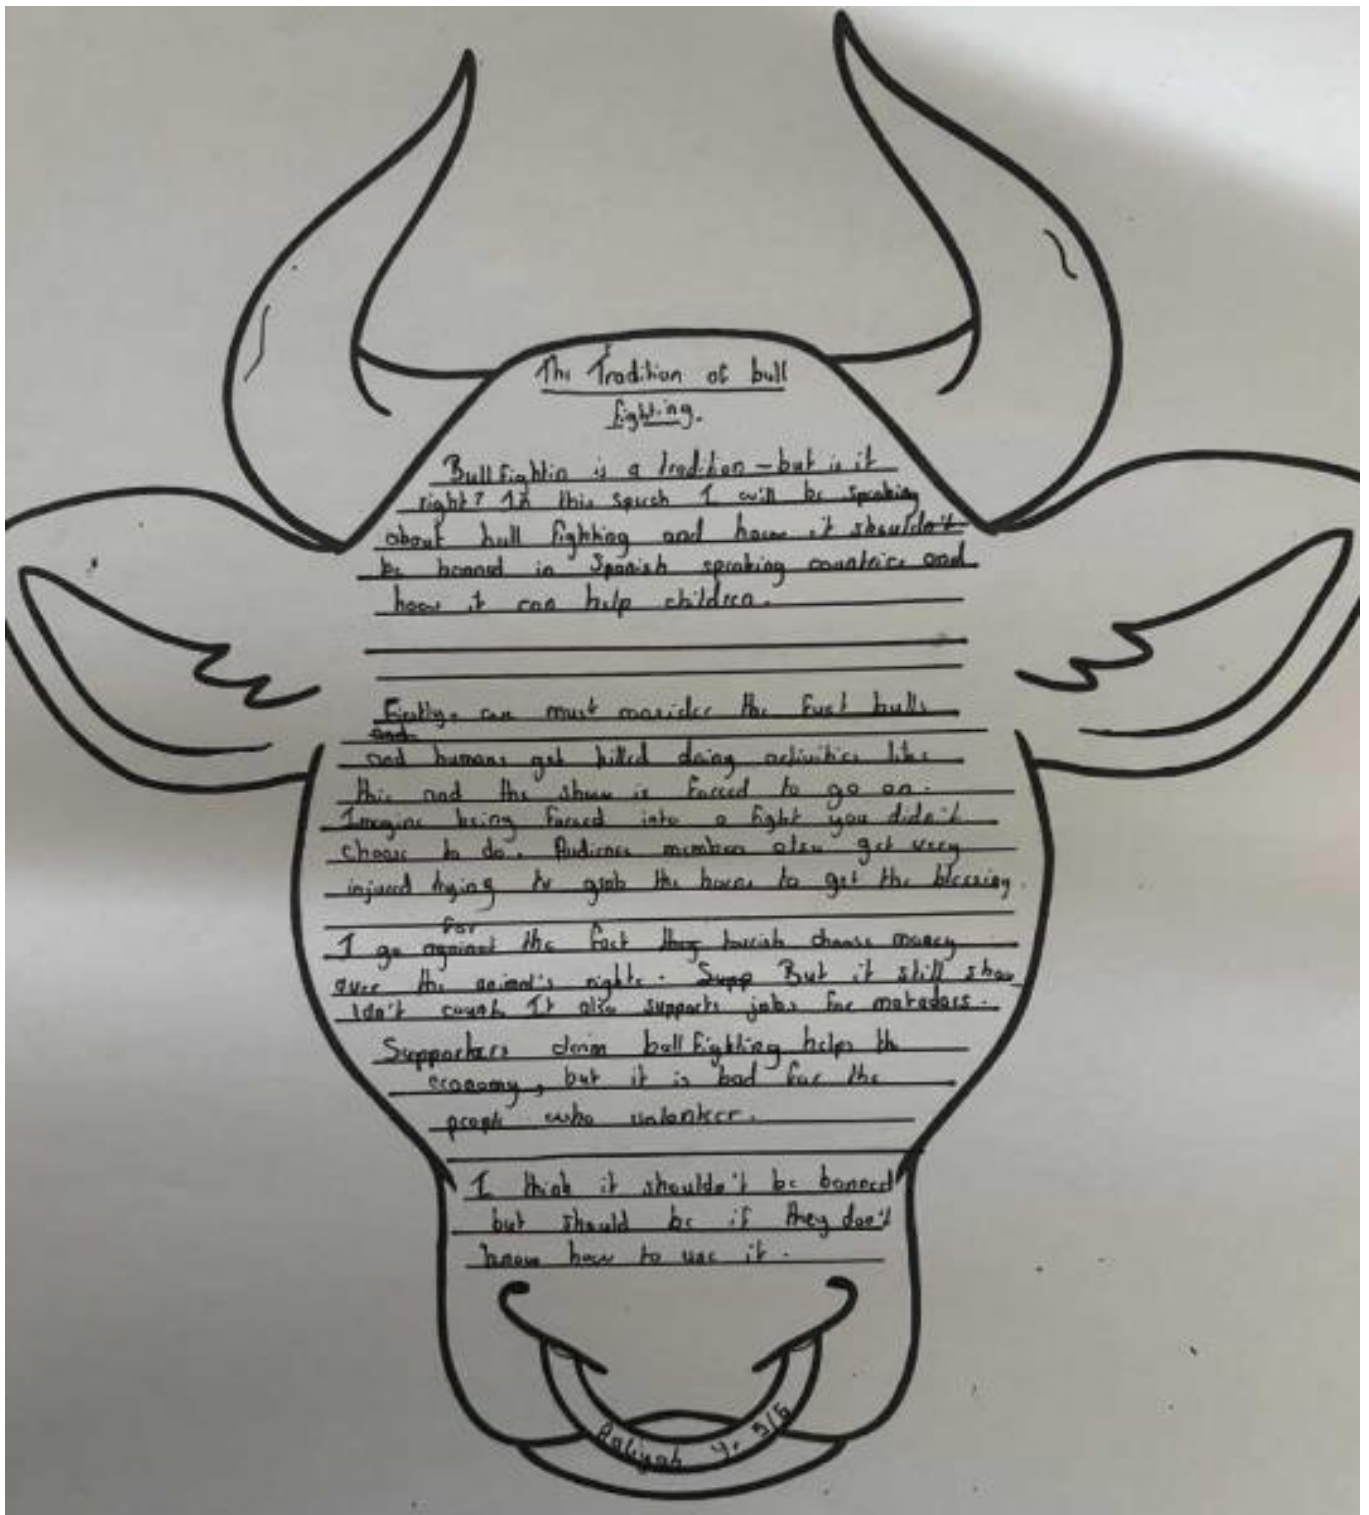 The Tradition of bull
fighting.
Bullfightin is a tradition - but is it
right? In this speech I will be speaking
about bull fighting and how it shouldn't
be banned in Spanish speaking countries and
how it can help children.
Firstly, we must consider the fact bulls
and
and humans get killed doing activities like
this and the show is forced to go on.
Imagine being forced into a fight you didn't
choose to do. Audience members also get very
injured trying to grab the horns to get the blessing.
for
I go against the fact they tourish choose money
over the animal's rights. Supp But it still shou
ldn't count. It also supports jobs for matadors.
Supporters claim bullfighting helps the
economy, but it is bad for the
people who volenteer.
I think it shouldn't be banned
but should be if they don't
know how to use it.
Aaliyah Yr 5/6